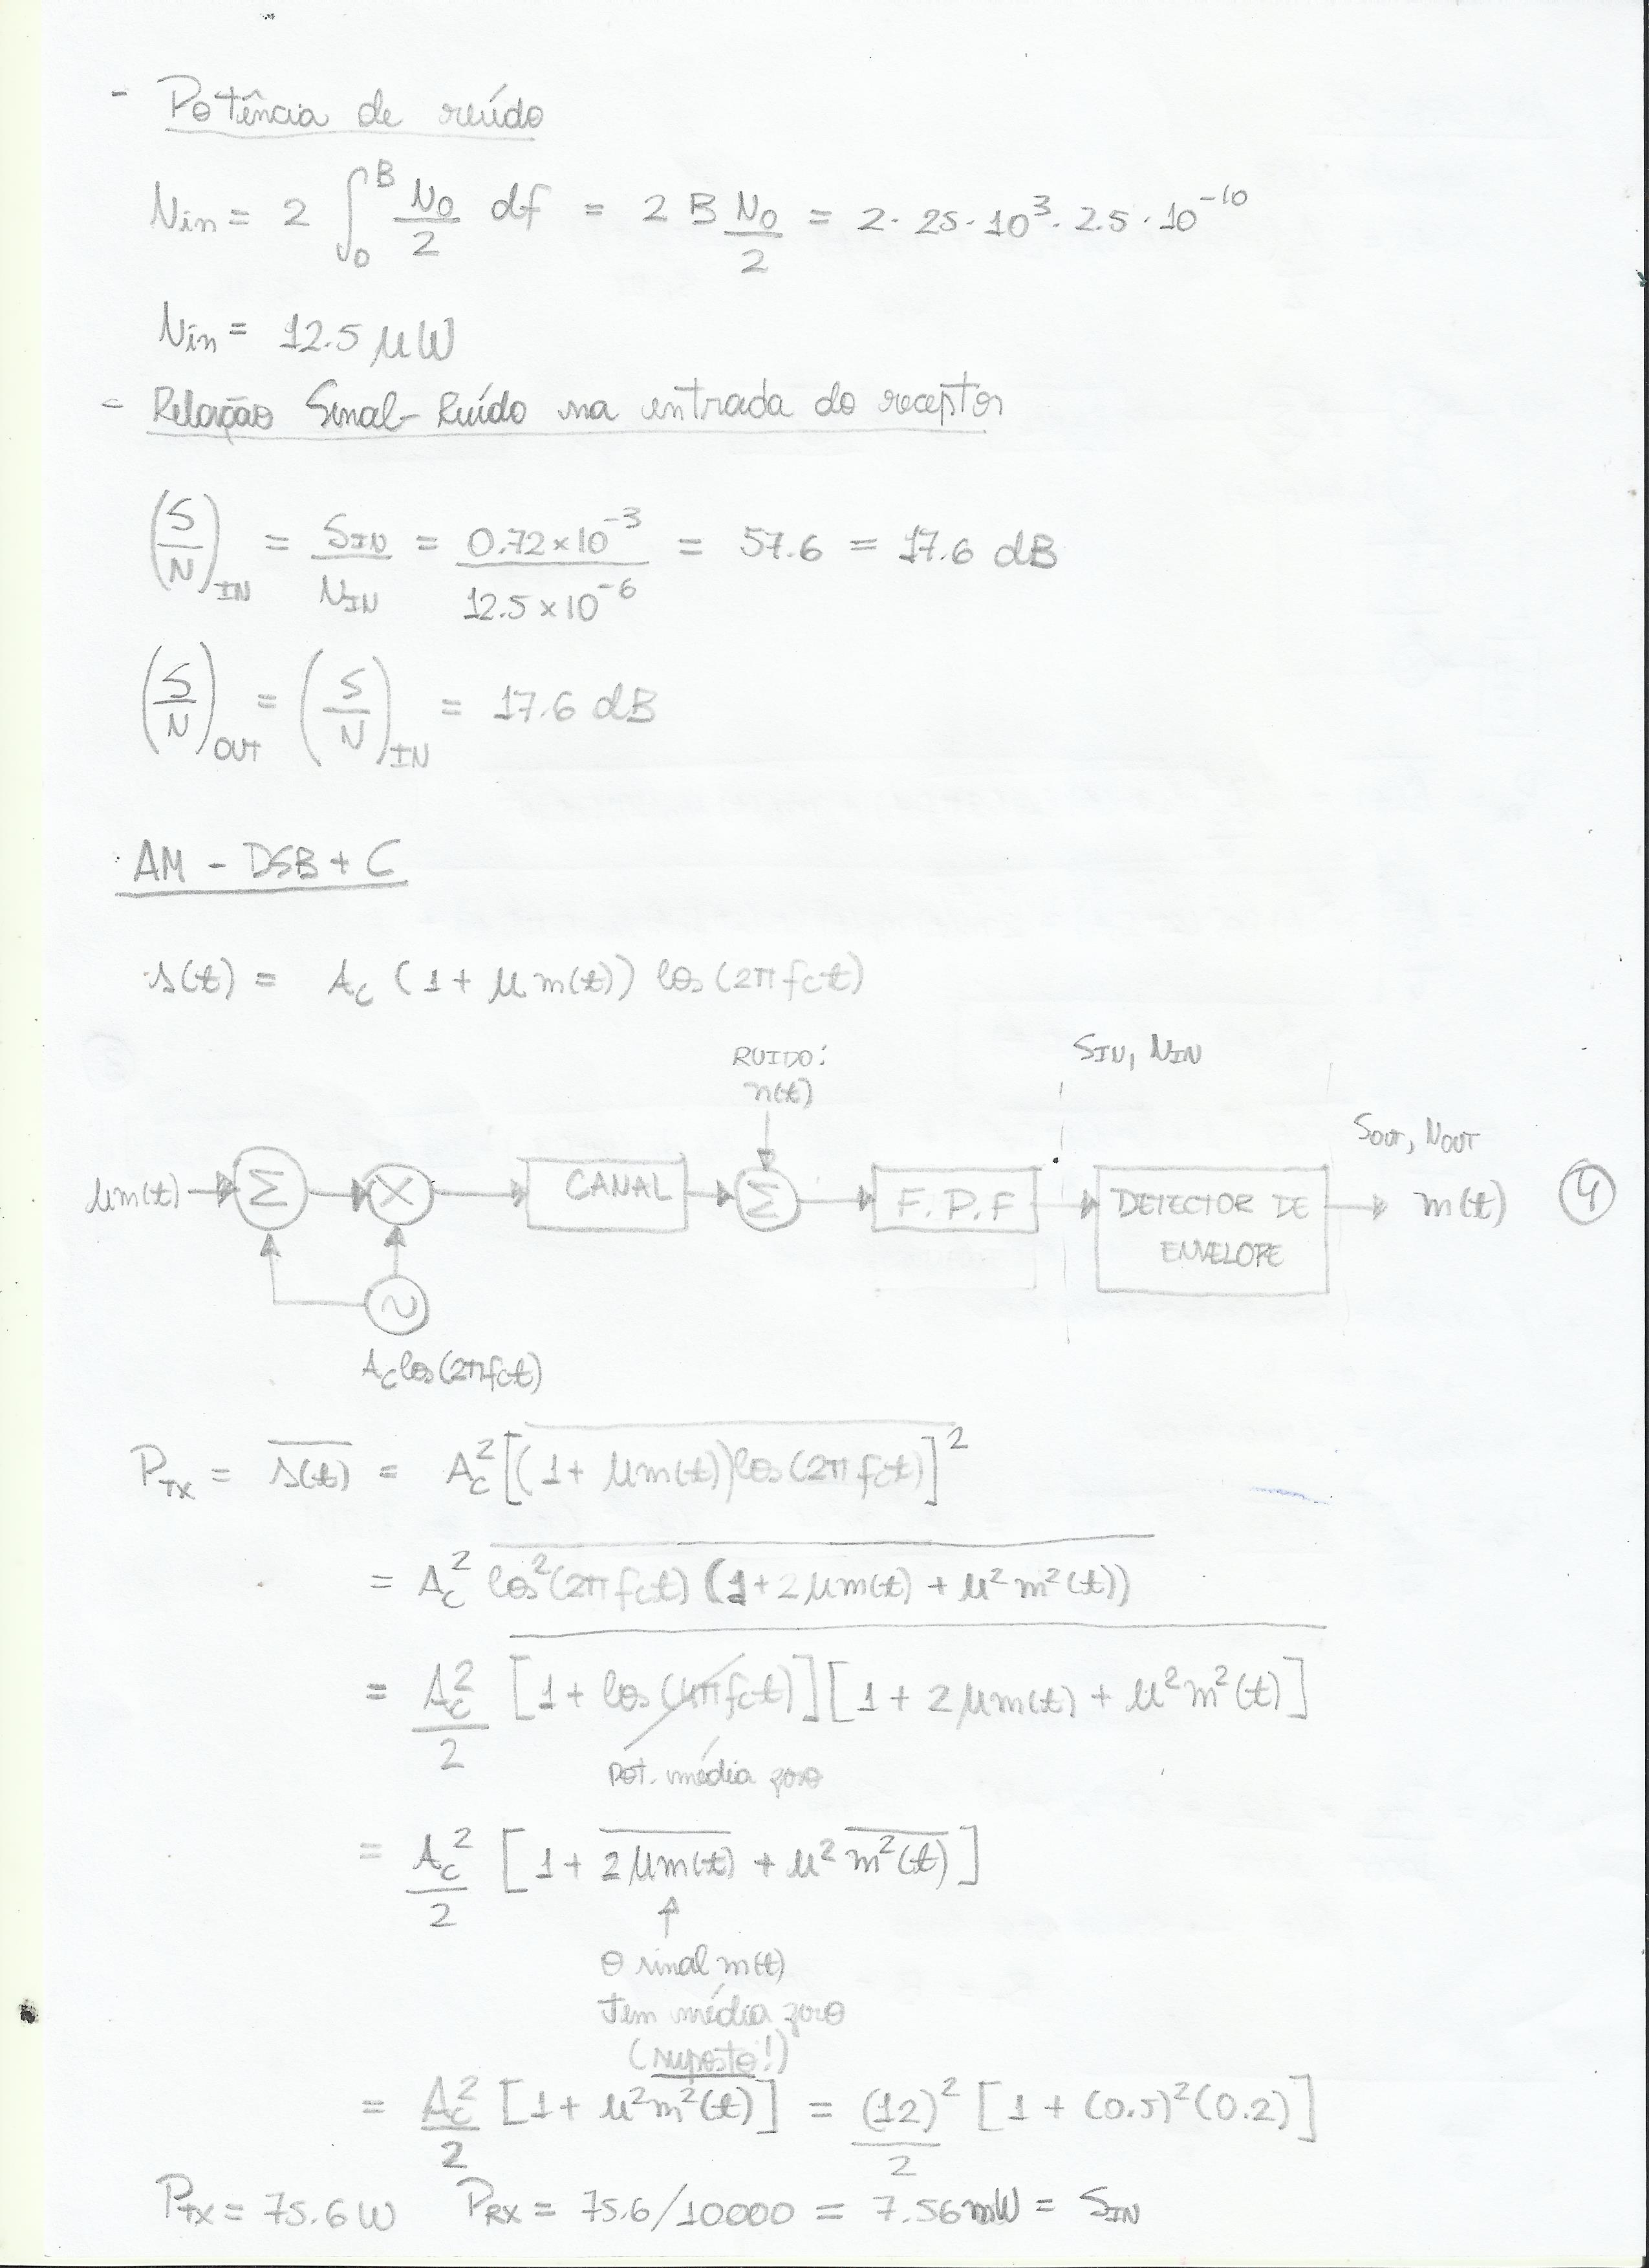 - Potência de ruído
Nin = 2 ∫₀ᴮ N0/2 df = 2 B N0/2 = 2 · 25 · 10³ · 2.5 · 10⁻¹⁰
Nin = 12.5 μW
- Relação Sinal-Ruído na entrada do receptor
(S/N)IN = SIN/NIN = 0.72×10⁻³/12.5×10⁻⁶ = 57.6 = 17.6 dB
(S/N)OUT = (S/N)IN = 17.6 dB
AM - DSB + C
s(t) = Ac (1 + μ m(t)) cos (2π fc t)
RUIDO:
n(t)
SIN, NIN
SOUT, NOUT
μm(t) Σ X CANAL Σ F.P.F DETECTOR DE ENVELOPE m(t) 4
~
Ac cos(2π fc t)
PTX = s(t) = Ac² [(1 + μm(t)) cos (2π fc t)]²
= Ac² cos²(2π fc t) (1 + 2μm(t) + μ² m²(t))
= Ac²/2 [1 + cos (4π fc t)] [1 + 2μm(t) + μ² m²(t)]
pot. média zero
= Ac²/2 [1 + 2μm(t) + μ² m²(t)]
↑
O sinal m(t)
tem média zero
(suposto!)
= Ac²/2 [1 + μ² m²(t)] = (12)²/2 [1 + (0.5)² (0.2)]
PTX = 75.6 W PRX = 75.6/10000 = 7.56 mW = SIN